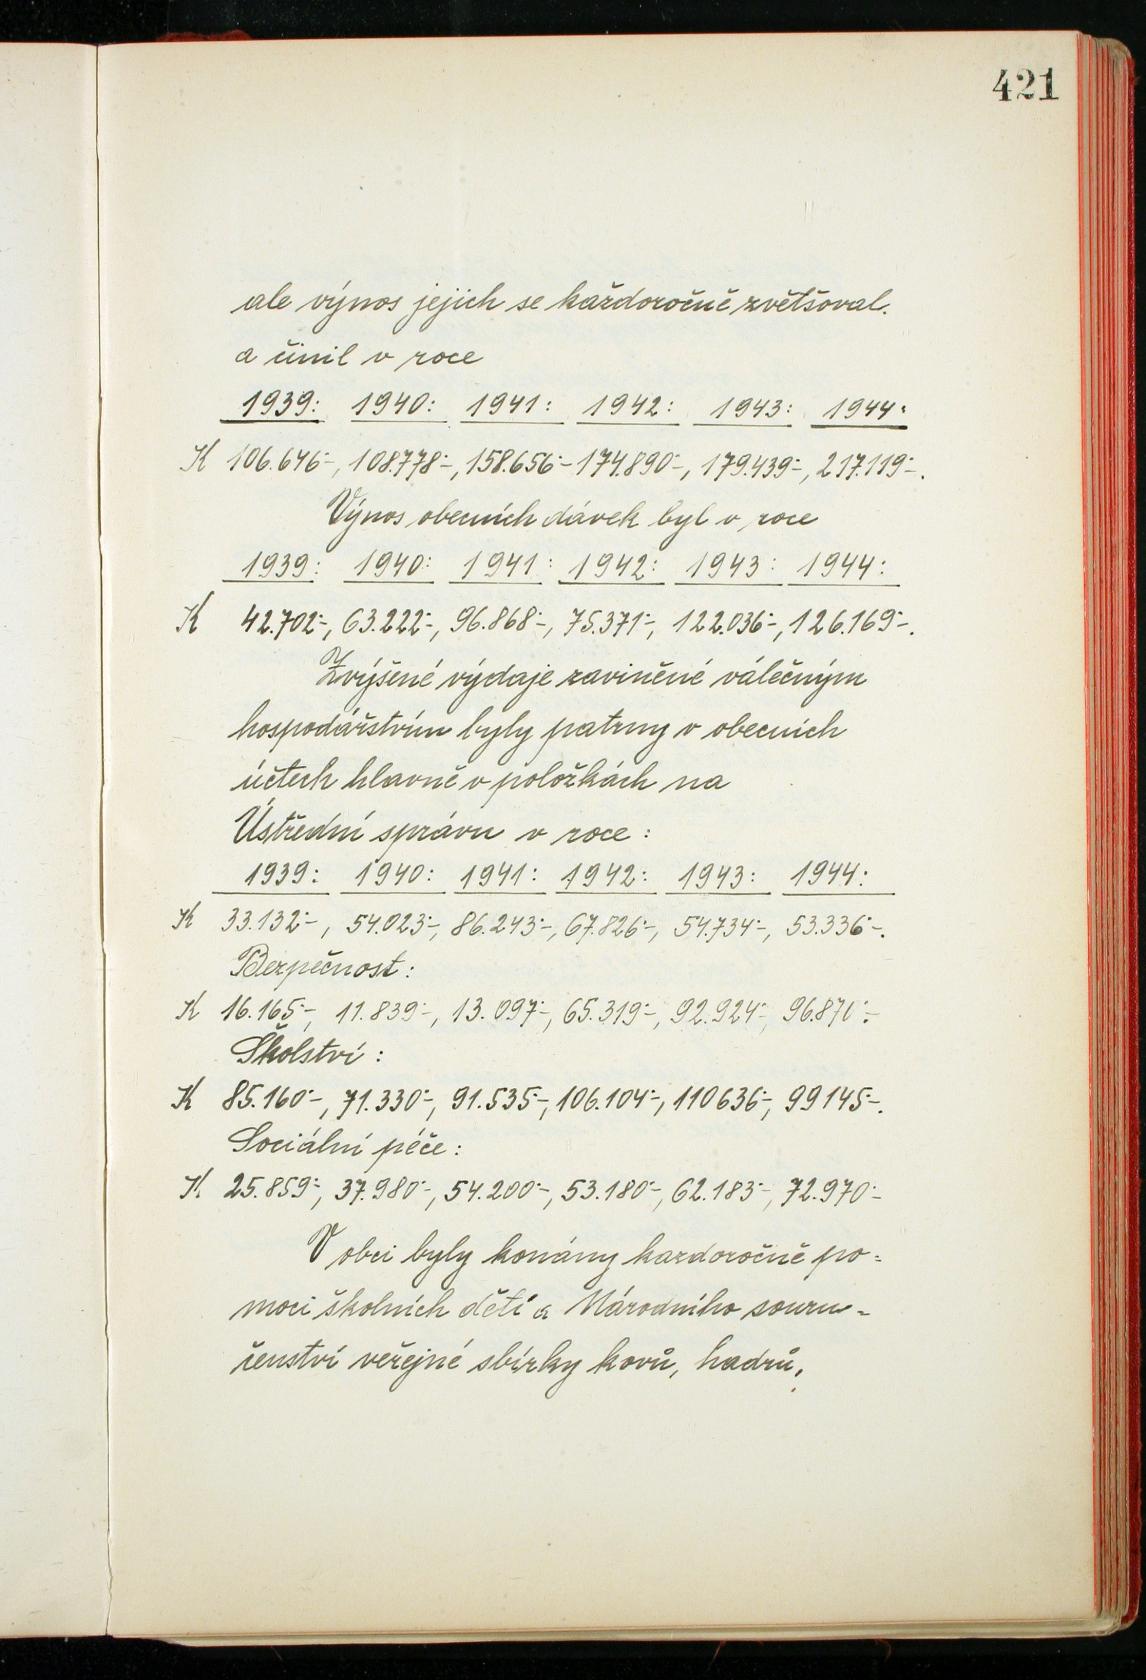 421
ale výnos jejich se každoročně zvětšoval.
a činil v roce
1939: 1940: 1941: 1942: 1943: 1944:
K 106.646-, 108.778-, 158.656- 174.890-, 179.439-, 217.119-.
Výnos obecních dávek byl v roce
1939: 1940: 1941: 1942: 1943: 1944:
K 42.702-, 63.222-, 96.868-, 75.371-, 122.036-, 126.169-.
Zvýšené výdaje zaviněné válečným
hospodářstvím byly patrny v obecních
účtech hlavně v položkách na
Ústřední správu v roce:
1939: 1940: 1941: 1942: 1943: 1944:
K 33.132-, 54.023-, 86.243-, 67.826-, 54.734-, 53.336-.
Bezpečnost:
K 16.165-, 11.839-, 13.097-, 65.319-, 92.924-, 96.870-.
Školství:
K 85.160-, 71.330-, 91.535-, 106.104-, 110636-, 99145-.
Sociální péče:
K 25.859-, 37.980-, 54.200-, 53.180-, 62.183-, 72.970-
V obci byly konány kazdoročně po=
moci školních dětí a Národního souru-
čenství veřejné sbírky kovů, hadrů,